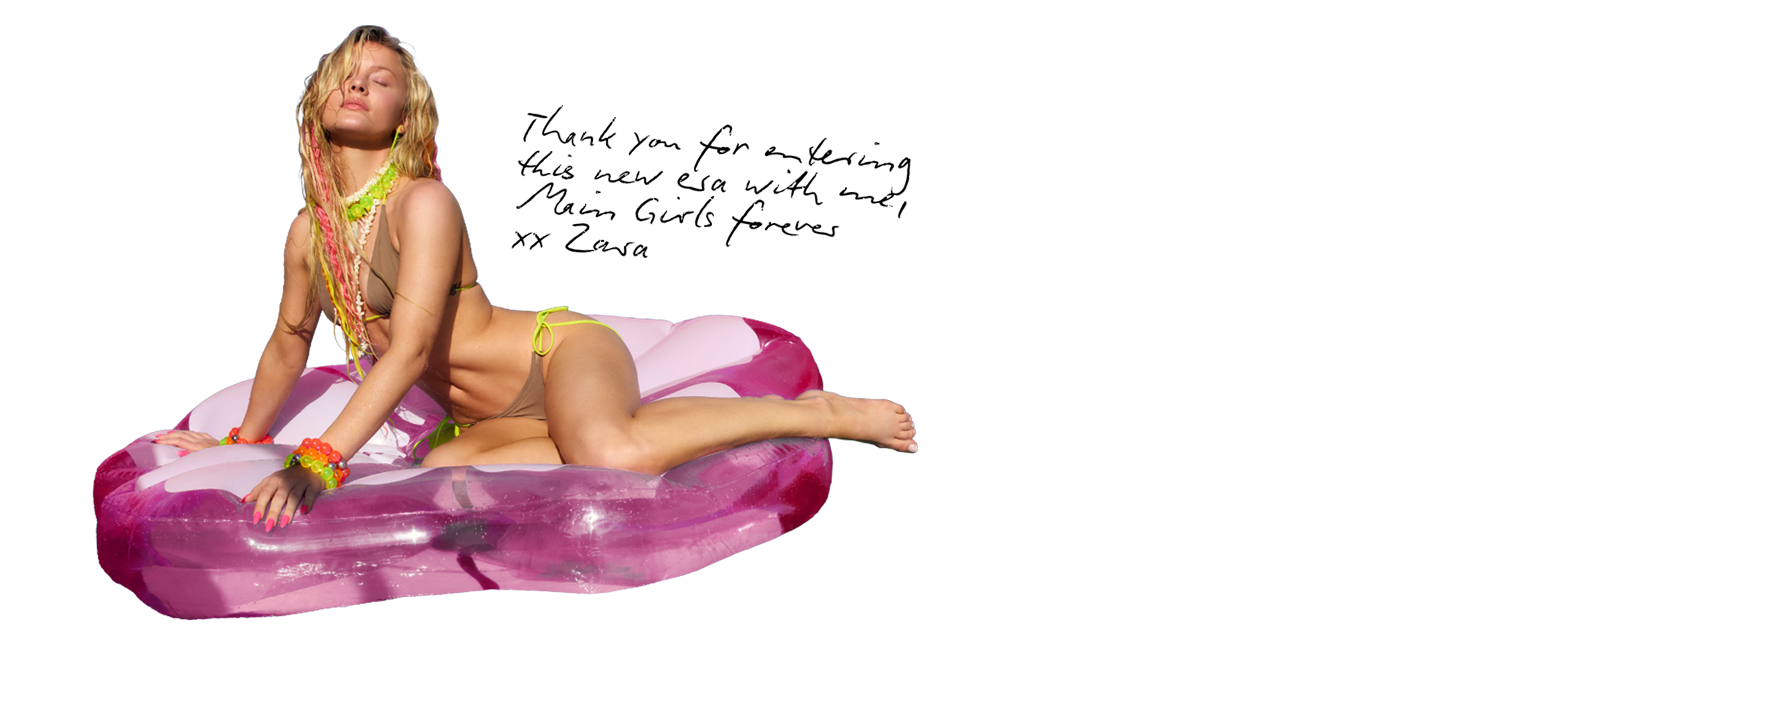 Thank you for entering
this new era with me!
Main Girls forever
xx Zara